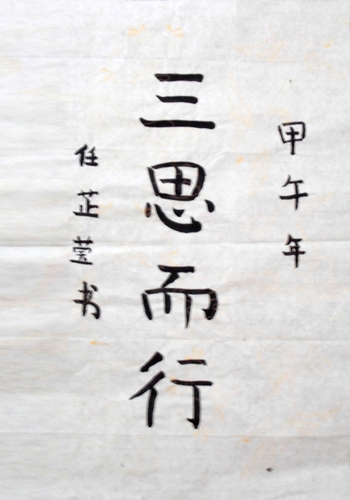 甲午年
三思而行
任芷莹书